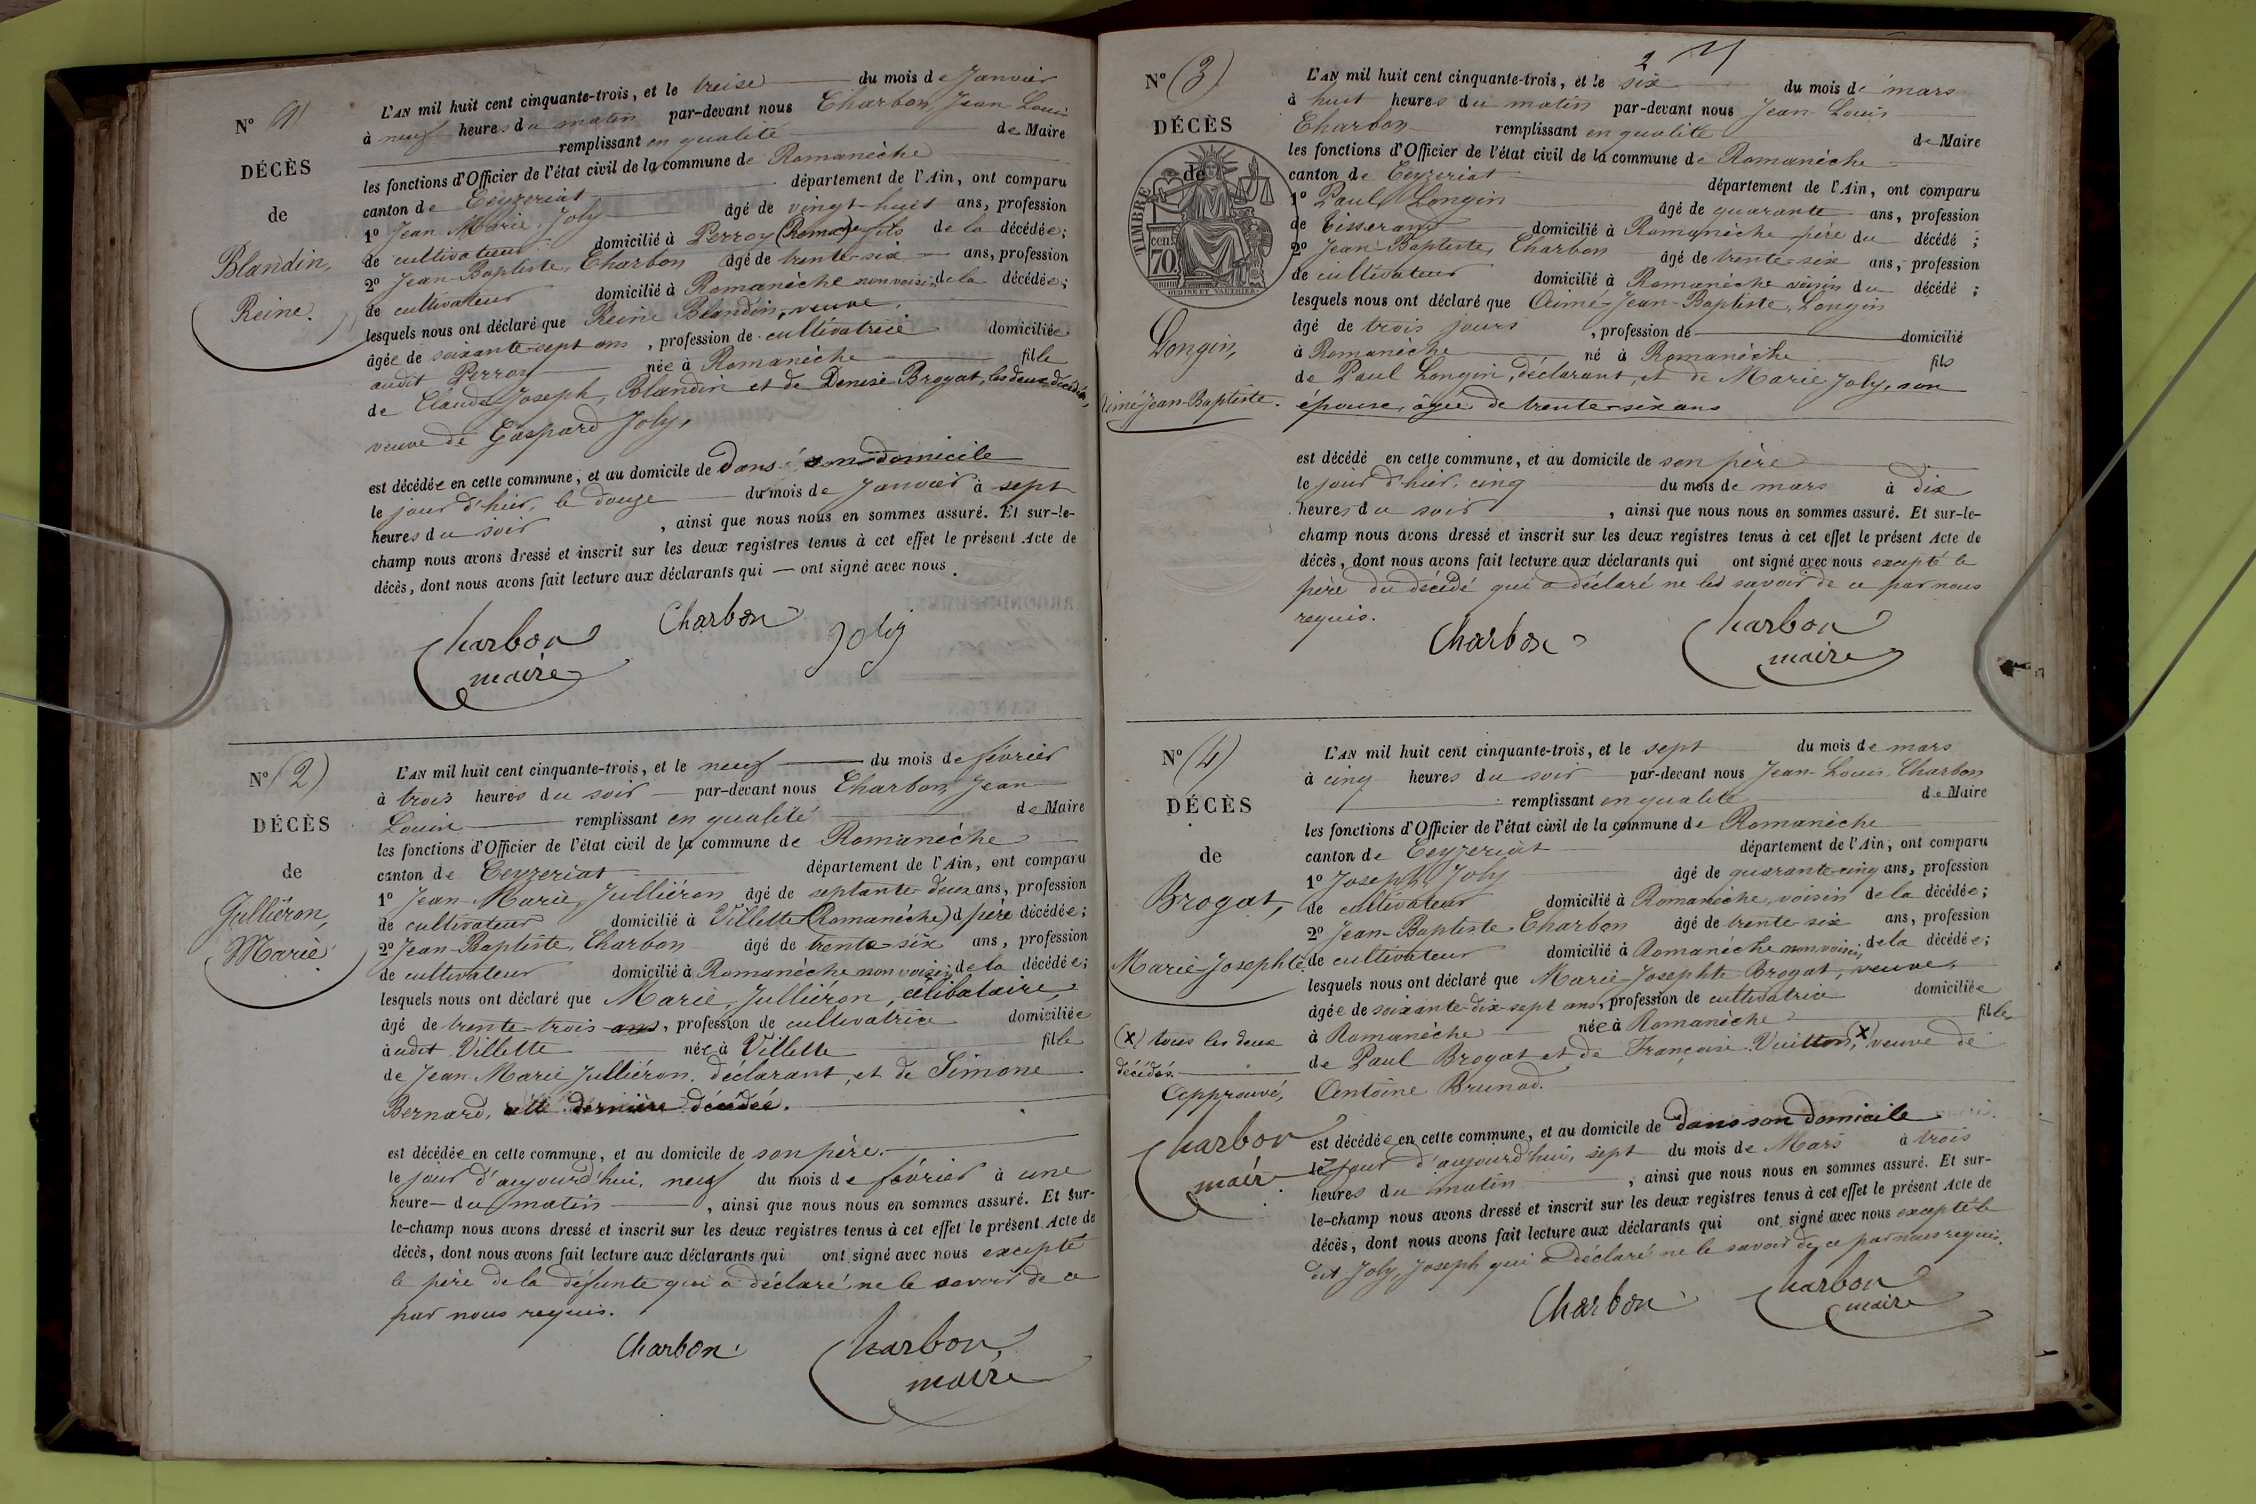 Nº (1)
DÉCÈS
de
Blandin,
Reine.
L'AN mil huit cent cinquante-trois, et le treise du mois de Janvier
à neuf heures du matin par-devant nous Charbon, Jean Louis
remplissant en qualité de Maire
les fonctions d'Officier de l'état civil de la commune de Romanèche
canton de Ceyzeriat département de l'Ain, ont comparu
1º Jean Marie Joly âgé de vingt-huit ans, profession
de cultivateur domicilié à Perroy (Roman) fils de la décédée;
2º Jean-Baptiste Charbon âgé de trente-six ans, profession
de cultivateur domicilié à Romanèche non voisin de la décédée;
lesquels nous ont déclaré que Reine Blandin, veuve,
âgée de soixante-sept ans, profession de cultivatrice domiciliée
audit Perroy née à Romanèche fille
de Claude Joseph Blandin et de Denise Brogat, les deux décédés,
veuve de Gaspard Joly,
est décédée en cette commune, et au domicile de Dans son domicile
le jour d'hier, le douze du mois de Janvier à sept
heures du soir, ainsi que nous nous en sommes assuré. Et sur-le-
champ nous avons dressé et inscrit sur les deux registres tenus à cet effet le présent Acte de
décès, dont nous avons fait lecture aux déclarants qui — ont signé avec nous.
Charbon Joly
Charbon
maire
Nº (2)
DÉCÈS
de
Julliéron,
Marie
L'AN mil huit cent cinquante-trois, et le neuf du mois de février
à trois heures du soir par-devant nous Charbon, Jean
Louis remplissant en qualité de Maire
les fonctions d'Officier de l'état civil de la commune de Romanèche
canton de Ceyzeriat département de l'Ain, ont comparu
1º Jean-Marie Julliéron âgé de septante-deux ans, profession
de cultivateur domicilié à Villette (Romanèche) père décédée;
2º Jean-Baptiste Charbon âgé de trente-six ans, profession
de cultivateur domicilié à Romanèche non voisin de la décédée;
lesquels nous ont déclaré que Marie Julliéron, célibataire,
âgé de trente-trois ans, profession de cultivatrice domiciliée
audit Villette née à Villette fille
de Jean-Marie Julliéron, déclarant, et de Simone
Bernard, cette dernière décédée.
est décédée en cette commune, et au domicile de son père.
le jour d'aujourd'hui, neuf du mois de février à une
heure du matin, ainsi que nous nous en sommes assuré. Et sur-
le-champ nous avons dressé et inscrit sur les deux registres tenus à cet effet le présent Acte de
décès, dont nous avons fait lecture aux déclarants qui ont signé avec nous excepté
le père de la défunte qui a déclaré ne le savoir de ce
par nous requis.
Charbon Charbon
maire
2
Nº (3)
DÉCÈS
de
TIMBRE
cen.
70
Longin,
Aimé Jean-Baptiste.
L'AN mil huit cent cinquante-trois, et le six du mois de mars
à huit heures du matin par-devant nous Jean-Louis
Charbon remplissant en qualité de Maire
les fonctions d'Officier de l'état civil de la commune de Romanèche
canton de Ceyzeriat département de l'Ain, ont comparu
1º Paul Longin âgé de quarante ans, profession
de Tisserand domicilié à Romanèche père du décédé;
2º Jean-Baptiste Charbon âgé de trente-six ans, profession
de cultivateur domicilié à Romanèche voisin du décédé;
lesquels nous ont déclaré que Aimé-Jean-Baptiste Longin
âgé de trois jours, profession de domicilié
à Romanèche né à Romanèche fils
de Paul Longin, déclarant, et de Marie Joly, son
épouse, âgée de trente-six ans
est décédé en cette commune, et au domicile de son père
le jour d'hier, cinq du mois de mars à dix
heures du soir, ainsi que nous nous en sommes assuré. Et sur-le-
champ nous avons dressé et inscrit sur les deux registres tenus à cet effet le présent Acte de
décès, dont nous avons fait lecture aux déclarants qui ont signé avec nous excepté le
père du décédé qui a déclaré ne le savoir de ce par nous
requis.
Charbon Charbon
maire
Nº (4)
DÉCÈS
de
Brogat,
Marie-Josephte
(X) tous les deux
décédés.
Approuvé,
Charbon
maire
L'AN mil huit cent cinquante-trois, et le sept du mois de mars
à cinq heures du soir par-devant nous Jean-Louis Charbon
remplissant en qualité de Maire
les fonctions d'Officier de l'état civil de la commune de Romanèche
canton de Ceyzeriat département de l'Ain, ont comparu
1º Joseph Joly âgé de quarante-cinq ans, profession
de cultivateur domicilié à Romanèche, voisin de la décédée;
2º Jean-Baptiste Charbon âgé de trente-six ans, profession
de cultivateur domicilié à Romanèche non voisin de la décédée;
lesquels nous ont déclaré que Marie-Josephte Brogat, veuve,
âgée de soixante-dix-sept ans, profession de cultivatrice domiciliée
à Romanèche née à Romanèche fille
de Paul Brogat et de Françoise Vuitton, (X) veuve de
Antoine Brunod.
est décédée en cette commune, et au domicile de dans son domicile
le jour d'aujourd'hui, sept du mois de Mars à trois
heures du matin, ainsi que nous nous en sommes assuré. Et sur-
le-champ nous avons dressé et inscrit sur les deux registres tenus à cet effet le présent Acte de
décès, dont nous avons fait lecture aux déclarants qui ont signé avec nous excepté le
dit Joly, Joseph qui a déclaré ne le savoir de ce par nous requis.
Charbon Charbon
maire